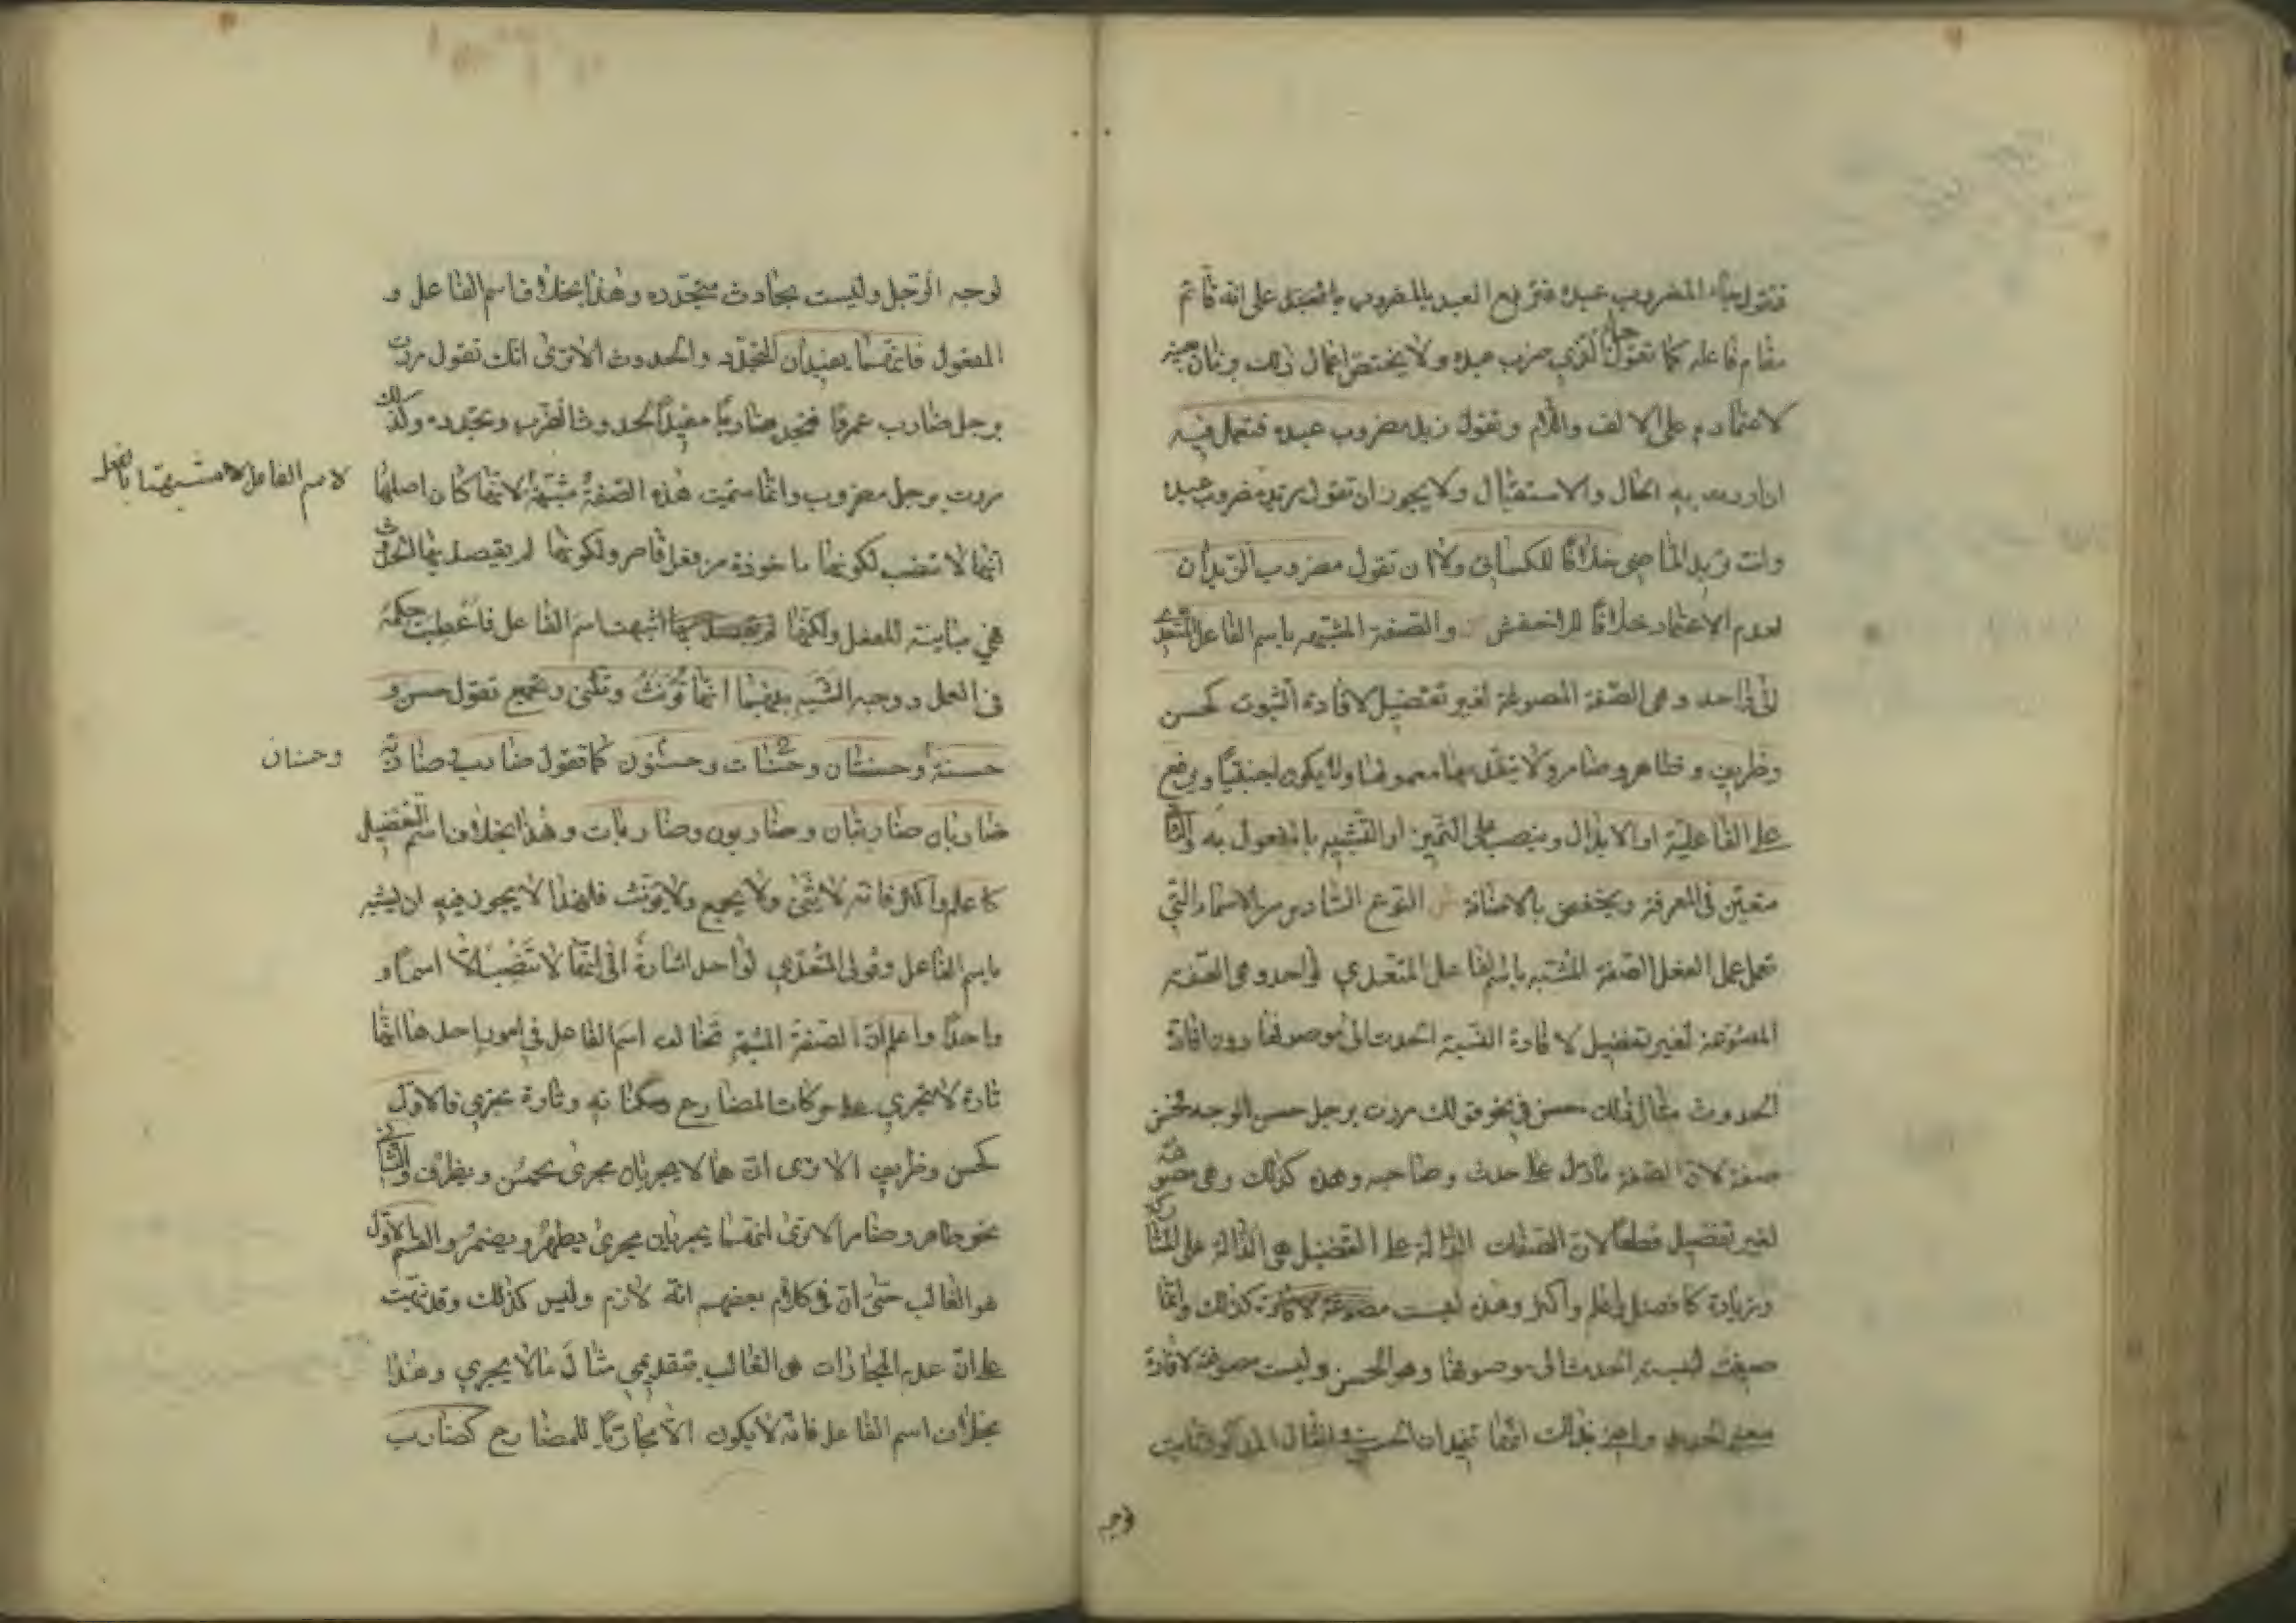 فتقول جاء المضروب عبده فترفع العبد بالمضروب بالمضروب على انه قائم
مقام فاعله كما تقول جاء الذي ضرب عبده ولا يختص اعمال ذلك بزمان بعينه
لاعتماده على الالف واللام وتقول زيد مضروب عبده فتعمل فيه
ان اردت به الحال والاستقبال ولا يجوز ان تقول زيد مضروب عبده
وانت تريد الماضي خلافا للكسائي ولا ان تقول مضروب الزيدان
لعدم الاعتماد خلافا للاخفش والصفة المشبهه باسم الفاعل المتعدي
الى واحد وهى الصفة المصوغة لغير تفضيل لافادة الثبوت كحسن
وظريف وطاهر وضامر ولا يتقدمها معمولها ولا يكون اجنبيا ويرفع
على الفاعلية او الابدال وينصب على التميز او التشبيه بالمفعول به والثاني
متعين في المعرفة ويخفض بالاضافة ش النوع السادس من الاسماء التي
تعمل عمل الفعل الصفة المشبه باسم الفاعل المتعدي لواحد وهى الصفة
المصوغة لغير تفضيل لافادة النسبة الحدث الى موصوفها دون افادة
الحدوث مثال ذلك حسن في نحو قولك مررت برجل حسن الوجه فحسن
صفة لان الصفة مادل على حدث وصاحبه وهذه كذلك وهى مصوغة
لغير تفضيل قطعا لان الصفات الدالة على التفضيل هى الدالة على المشاركة
وزيادة كافضل واعلم واكثر وهذه ليست مصوغة كذلك وانما
صيغت لنسبة الحدث الى موصوفها وهو الحسن وليست مصوغة لافادة
معنى الحدوث واعني بذلك انها تفيد ان الحسن في المثال المذكور ثابت
لوجه
لوجه الرجل وليست بحادث متجدده وهذا بخلاف اسم الفاعل و
المفعول فانهما يفيدان التجدد والحدوث الاترى انك تقول مررت
برجل ضارب عمرفا فتجد ضاربا مفيدا لحدوث الضرب وتجدده وكذلك
مررت برجل مضروب وانما سميت هذه الصفة مشبهة لانها كان اصلها
انها لا تنصب لكونها ماخوذة من فعل قاصر ولكونها لم يقصد بها الحدوث
فهي مباينة للفعل ولكنها اشبهت اسم الفاعل فاعطيت حكمه
فى العمل ووجه الشبه بينهما انها تؤنث وتثنى وتجمع تقول حسن و
حسنة وحسنتان وحسنات وحسنون كما تقول ضارب وضاربة
ضاربان ضاربتان وضاربون وضاربات وهذا بخلاف اسم التفضيل
كاعلم واكثر فانه لا يثنى ولا يجمع ولا يؤنث فلهذا لا يجوز فيه ان يشبه
باسم الفاعل وقولى المتعدي لواحد اشارة الى انها لا تنصب الا اسما و
واحدا واعلم ان الصفة المشبه تخالف اسم الفاعل في امور احدها انها
تارة لا تجري على حركات المضارع وسكناته وتارة تجري فالاول
كحسن وظريف الاترى ان هما لا يجريان مجرى يحسن ويظرف والثاني
نحو طاهر وضامر الاترى انهما يجريان مجرى يطهر ويضمر والقسم الاول
هو الغالب حتى ان في كلام بعضهم انه لازم وليس كذلك وقد نبهت
على ان عدم المجازات هو الغالب بتقديمي مثال مالا يجري وهذا
بخلاف اسم الفاعل فانه لا يكون الا مجاريا للمضارع كضارب
لاسم الفاعل لا مشبهتها بالفعل
وحسنان